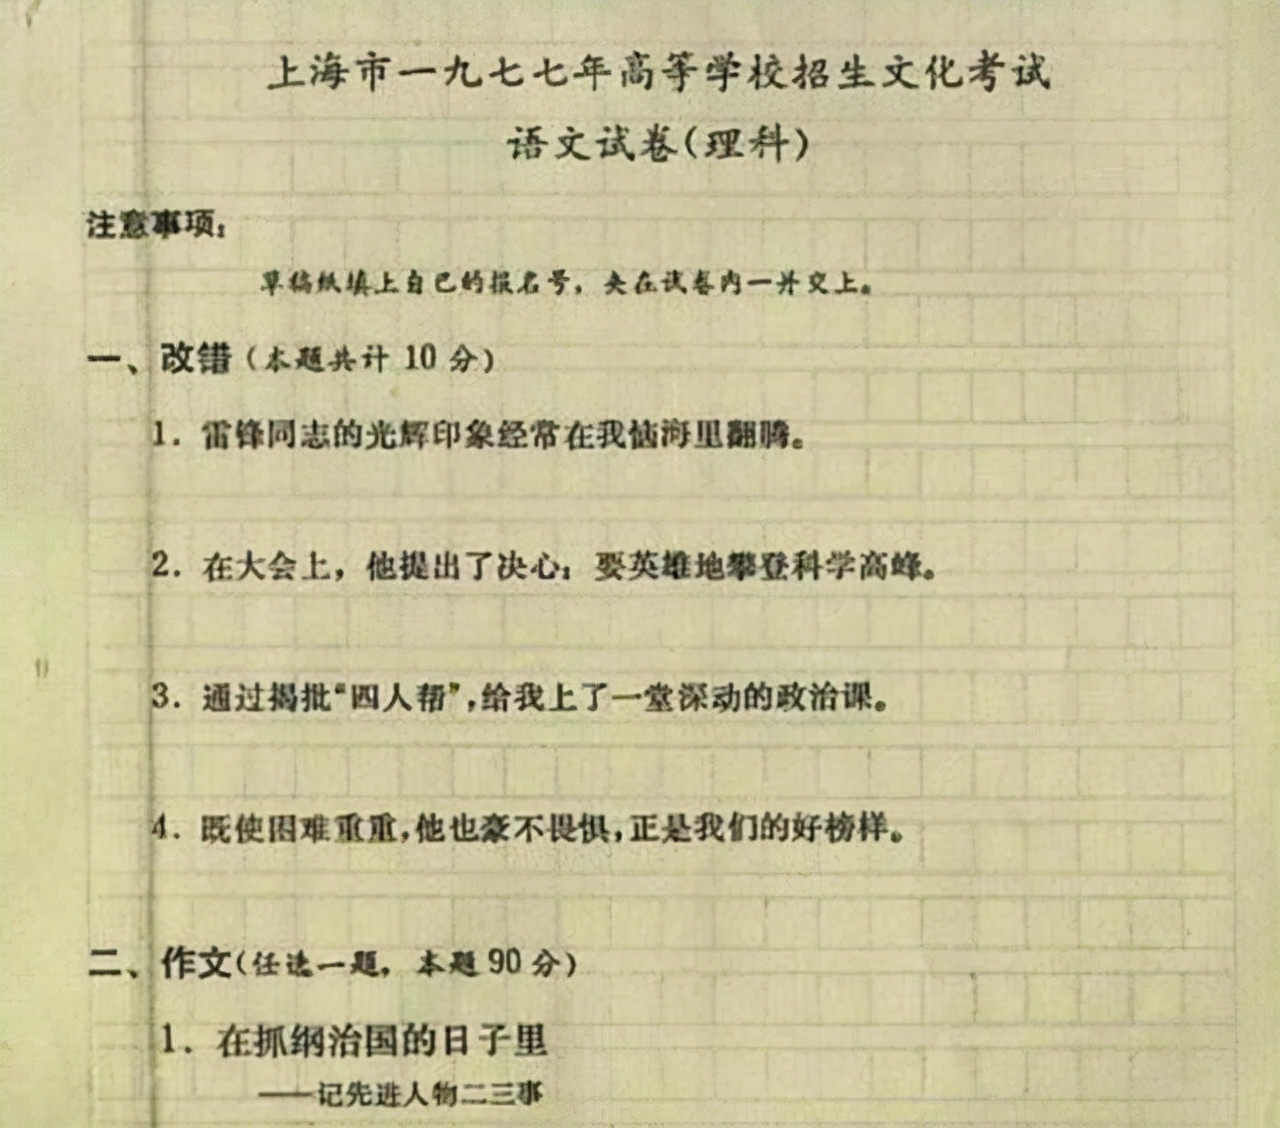 上海市一九七七年高等学校招生文化考试
语文试卷(理科)
注意事项:
草稿纸填上自己的报名号,夹在试卷内一并交上。
一、改错(本题共计 10 分)
1. 雷锋同志的光辉印象经常在我恼海里翻腾。
2. 在大会上,他提出了决心:要英雄地攀登科学高峰。
3. 通过揭批“四人帮”,给我上了一堂深动的政治课。
4. 既使困难重重,他也豪不畏惧,正是我们的好榜样。
二、作文(任选一题,本题 90 分)
1. 在抓纲治国的日子里
——记先进人物二三事